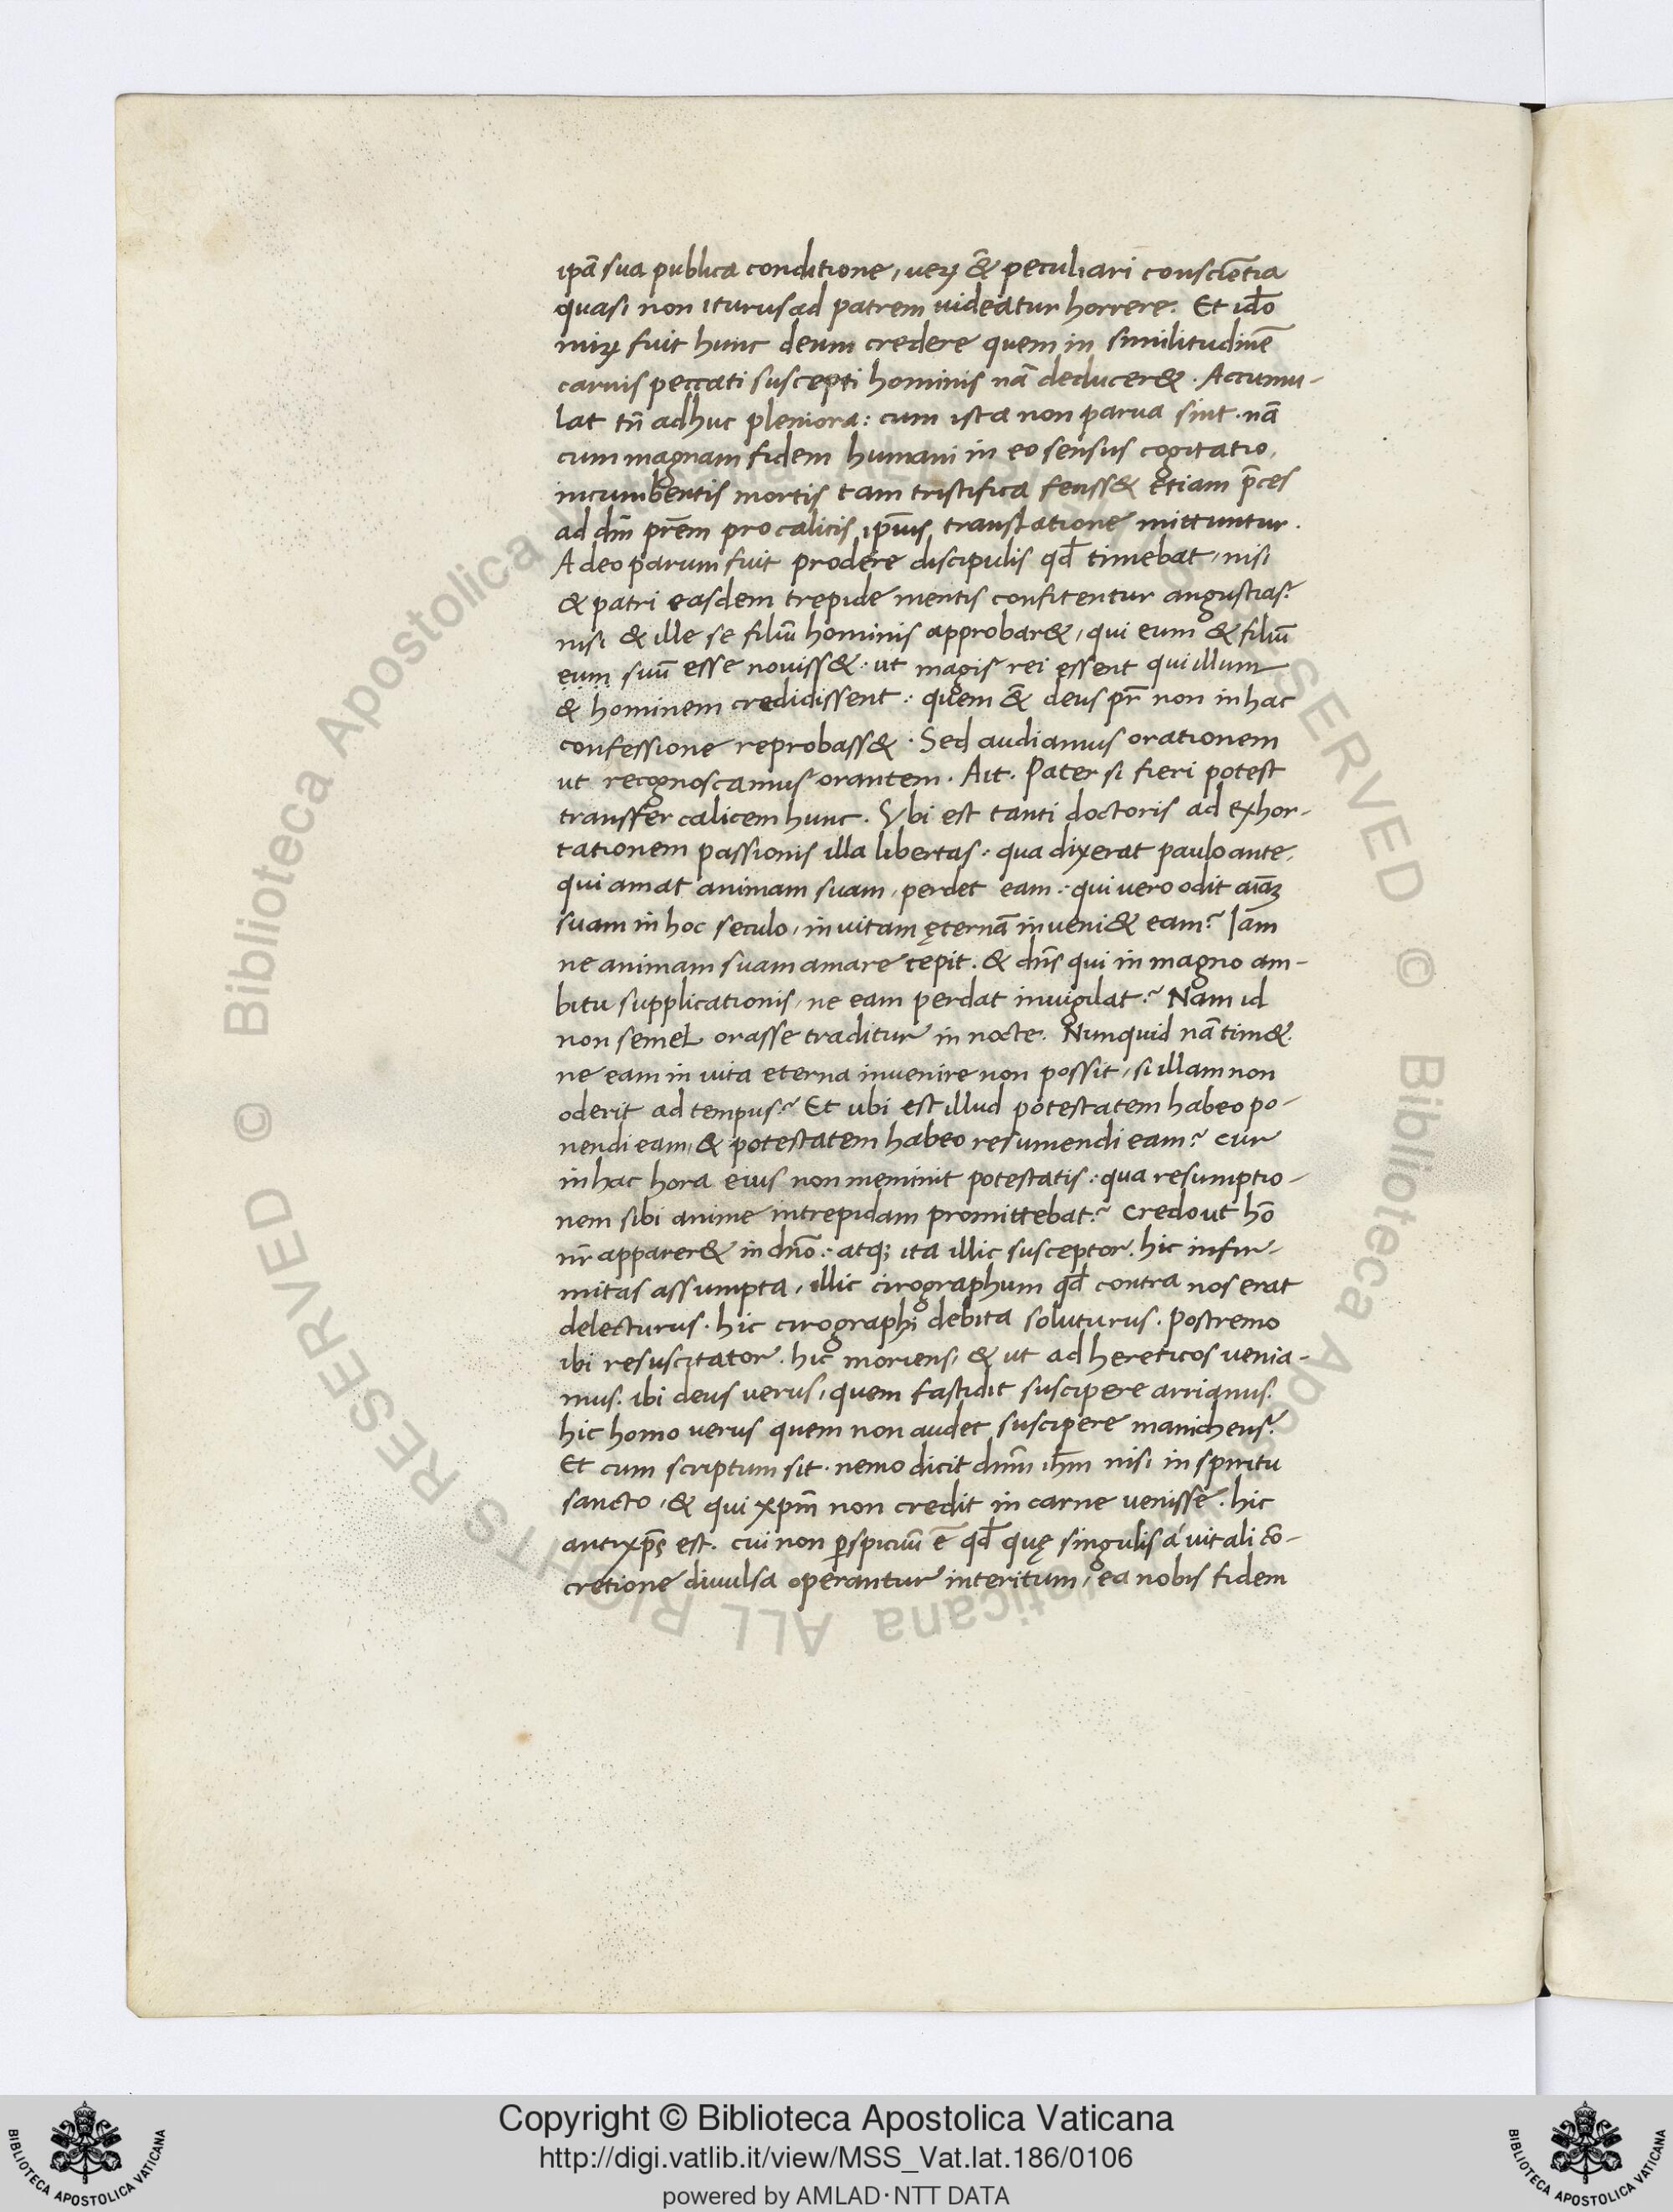 ipã sua publica conditione, ueꝝ & peculiari consciẽtia
quasi non iturus ad patrem uideatur horrere. Et ido̅
miꝝ fuit hunc deum credere quem in similitudinẽ
carnis peccati suscepti hominis nã deducer&. Accumu-
lat tn̅ adhuc pleniora: cum ista non parua sint. nã
cum magnam fidem humani in eo sensus cogitatio,
incumbentis mortis tam tristifica feciss& etiam p̅ces
ad dm̅ pr̅em pro calicis ip̅ius translatione mittuntur.
Adeo parum fuit prodere discipulis qd̅ timebat, nisi
& patri easdem trepide mentis confitentur angustias?
nisi & ille se filiũ hominis approbar&, qui eum & filiũ
eum suũ esse nouiss&. ut magis rei essent qui illum
& hominem credidissent: quem &̅ deus pr̅ non in hac
confessione reprobass&. Sed audiamus orationem
ut recognoscamus orantem. Ait. Pater si fieri potest
transfer calicem hunc. Vbi est tanti doctoris ad exhor-
tationem passionis illa libertas: qua dixerat paulo ante,
qui amat animam suam, perdet eam: qui uero odit aı̅aꝫ
suam in hoc seculo, in uitam ęternã inueni& eam? Iam
ne animam suam amare cepit. & dn̅s qui in magno am-
bitu supplicationis, ne eam perdat inuigilat? Nam id
non semel orasse traditur in nocte. Nunquid nã tim&.
ne eam in uita eterna inuenire non possit, si illam non
oderit ad tempus? Et ubi est illud potestatem habeo po-
nendi eam, & potestatem habeo resumendi eam? cur
in hac hora eius non meminit potestatis: qua resumptio-
nem sibi anime intrepidam promittebat? Credo ut ho̅
nr̅ apparer& in dn̅o: atq; ita illic susceptor. hic infir-
mitas assumpta, illic cirographum qd̅ contra nos erat
delecturus. hic cirographi debita soluturus. Postremo
ibi resuscitator. hic moriens, & ut ad hereticos uenia-
mus. ibi deus uerus, quem fastidit suscipere arrianus.
hic homo uerus quem non audet suscipere manicheus?
Et cum scriptum sit. nemo dicit dnm̅ ihm̅ nisi in spiritu
sancto, & qui xpm̅ non credit in carne uenisse. hic
antixp̅s est. cui non ꝑspicuũ e̅ qd̅ quę singulis á uitali cõ-
cretione diuulsa operantur interitum, ea nobis fidem
© Biblioteca Apostolica Vaticana ALL RIGHTS RESERVED
Copyright © Biblioteca Apostolica Vaticana
http://digi.vatlib.it/view/MSS_Vat.lat.186/0106
powered by AMLAD·NTT DATA
BIBLIOTECA APOSTOLICA VATICANA
BIBLIOTECA APOSTOLICA VATICANA